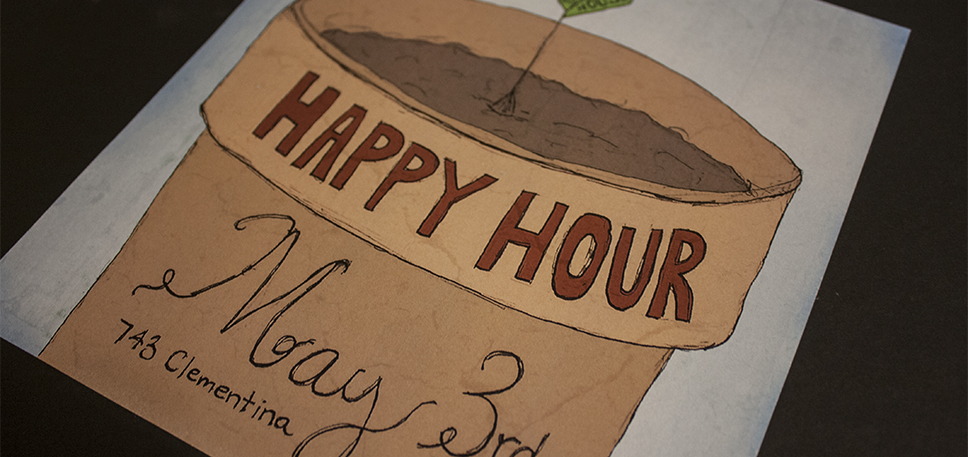 HAPPY HOUR
May 3rd
743 Clementina